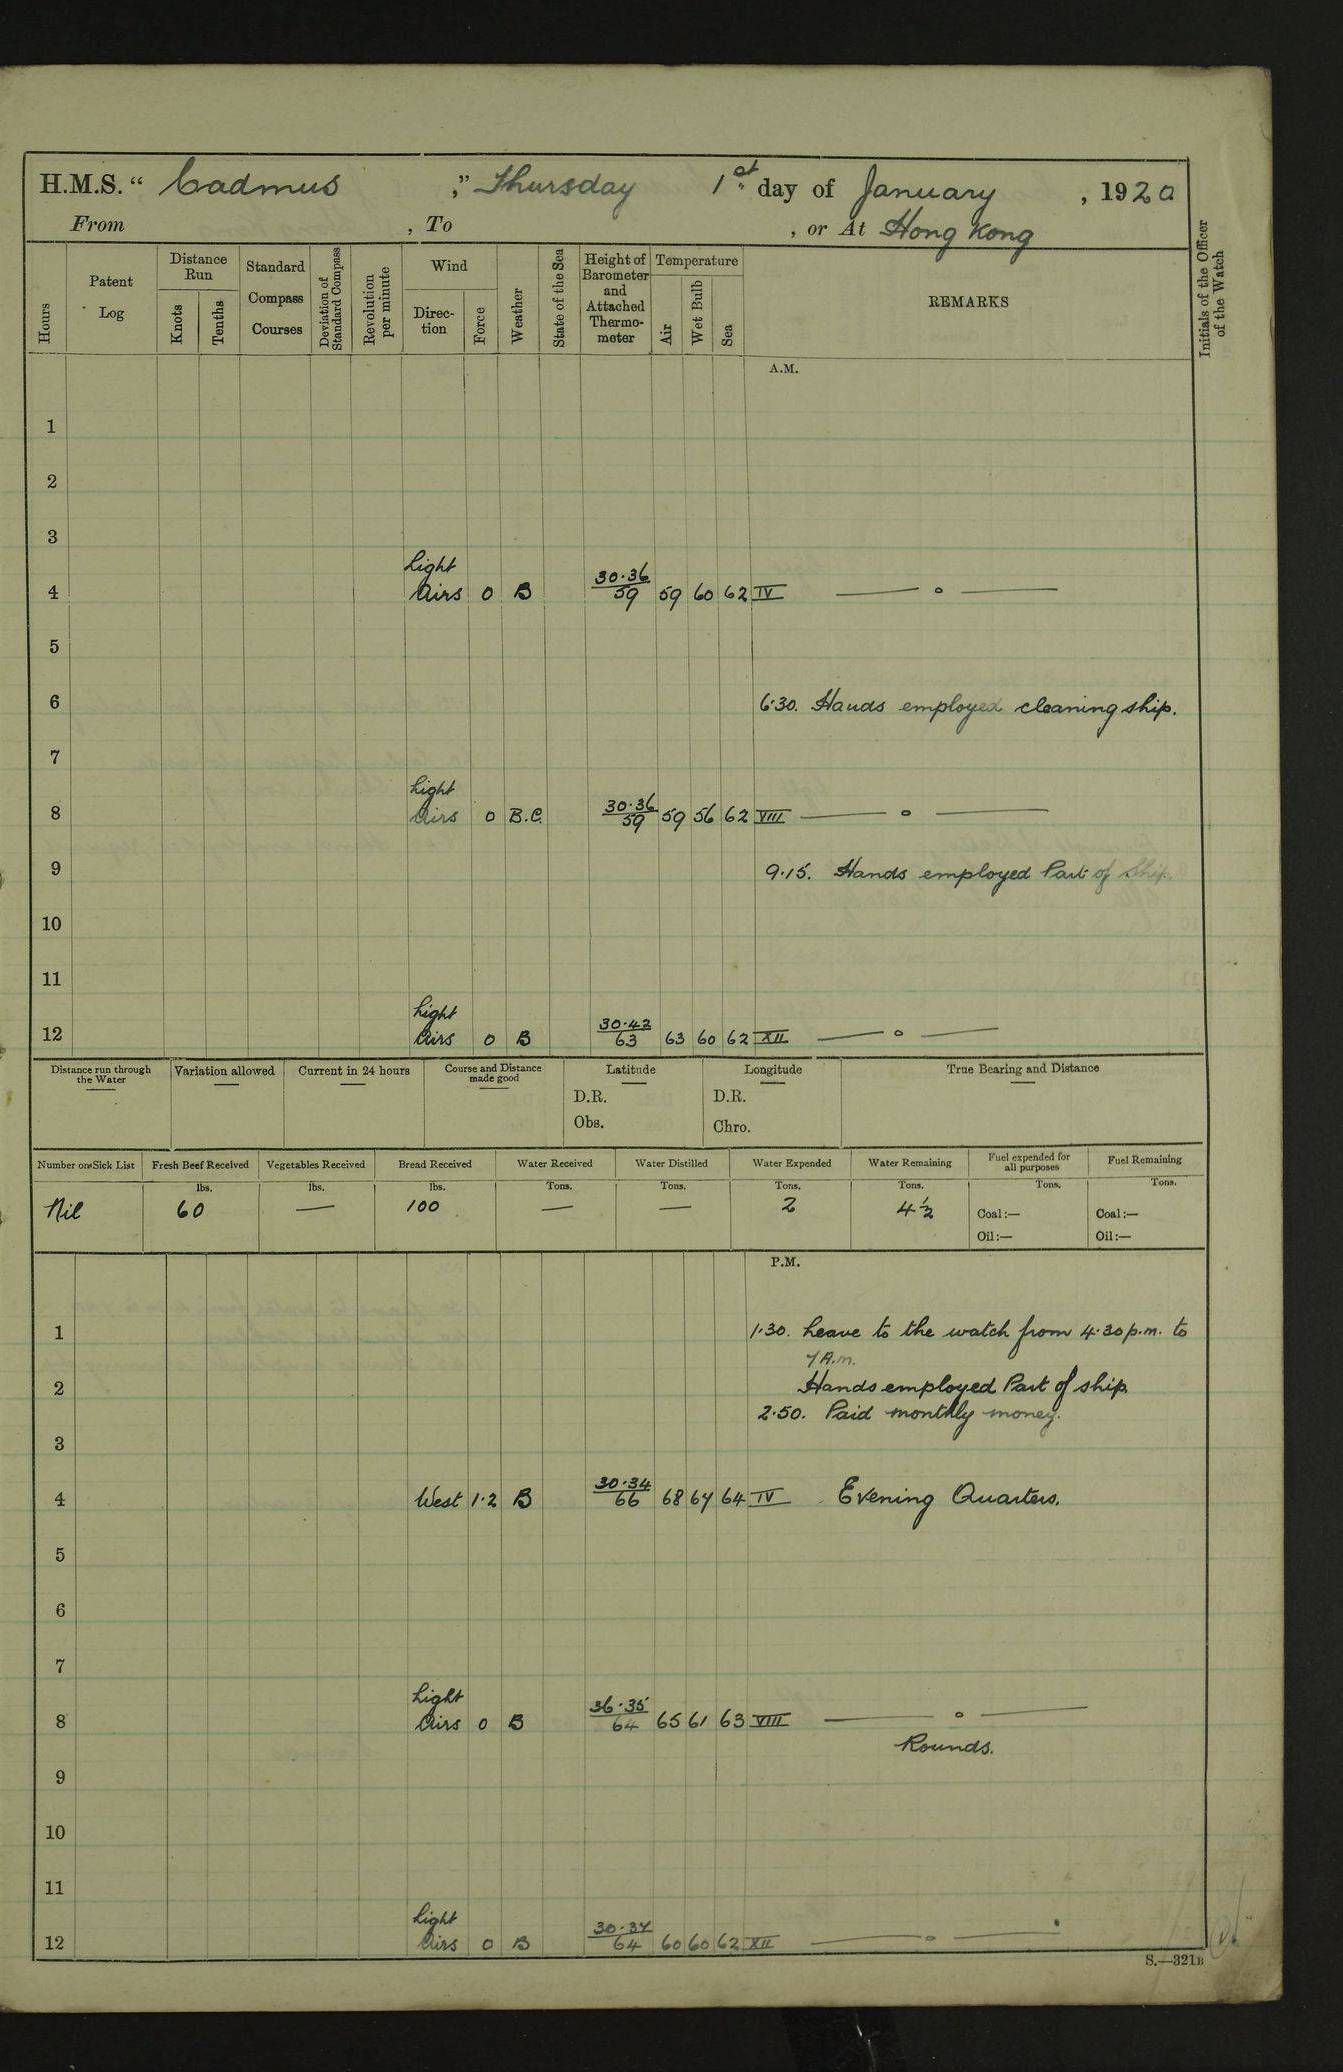 H.M.S. “ Cadmus ,” Thursday 1st day of January , 1920
From , To , or At Hong Kong
Hours
Patent Log
Distance Run
Knots
Tenths
Standard Compass Courses
Deviation of Standard Compass
Revolution per minute
Wind
Direction
Force
Weather
State of the Sea
Height of Barometer and Attached Thermometer
Temperature
Air
Wet Bulb
Sea
REMARKS
Initials of the Officer of the Watch
A.M.
1
2
3
Light
4 Airs 0 B 30·36/59 59 60 62 IV — o —
5
6 6·30. Hands employed cleaning ship.
7
Light
8 Airs 0 B.C. 30·36/59 59 56 62 VIII — o —
9 9·15. Hands employed Part of Ship.
10
11
Light
12 Airs 0 B 30·42/63 63 60 62 XII — o —
Distance run through the Water
Variation allowed
Current in 24 hours
Course and Distance made good
Latitude
D.R.
Obs.
Longitude
D.R.
Chro.
True Bearing and Distance
Number on Sick List Fresh Beef Received Vegetables Received Bread Received Water Received Water Distilled Water Expended Water Remaining Fuel expended for all purposes Fuel Remaining
lbs. lbs. lbs. Tons. Tons. Tons. Tons. Tons. Tons.
Nil 60 — 100 — — 2 4½ Coal:— Coal:—
Oil:— Oil:—
P.M.
1 1·30. Leave to the watch from 4·30 p.m. to
7 A.m.
2 Hands employed Part of ship.
2·50. Paid monthly money.
3
4 West 1·2 B 30·34/66 68 67 64 IV Evening Quarters.
5
6
7
Light
8 Airs 0 B 36·35/64 65 61 63 VIII — o —
Rounds.
9
10
11
Light
12 Airs 0 B 30·37/64 60 60 62 XII — o —
S.—321B